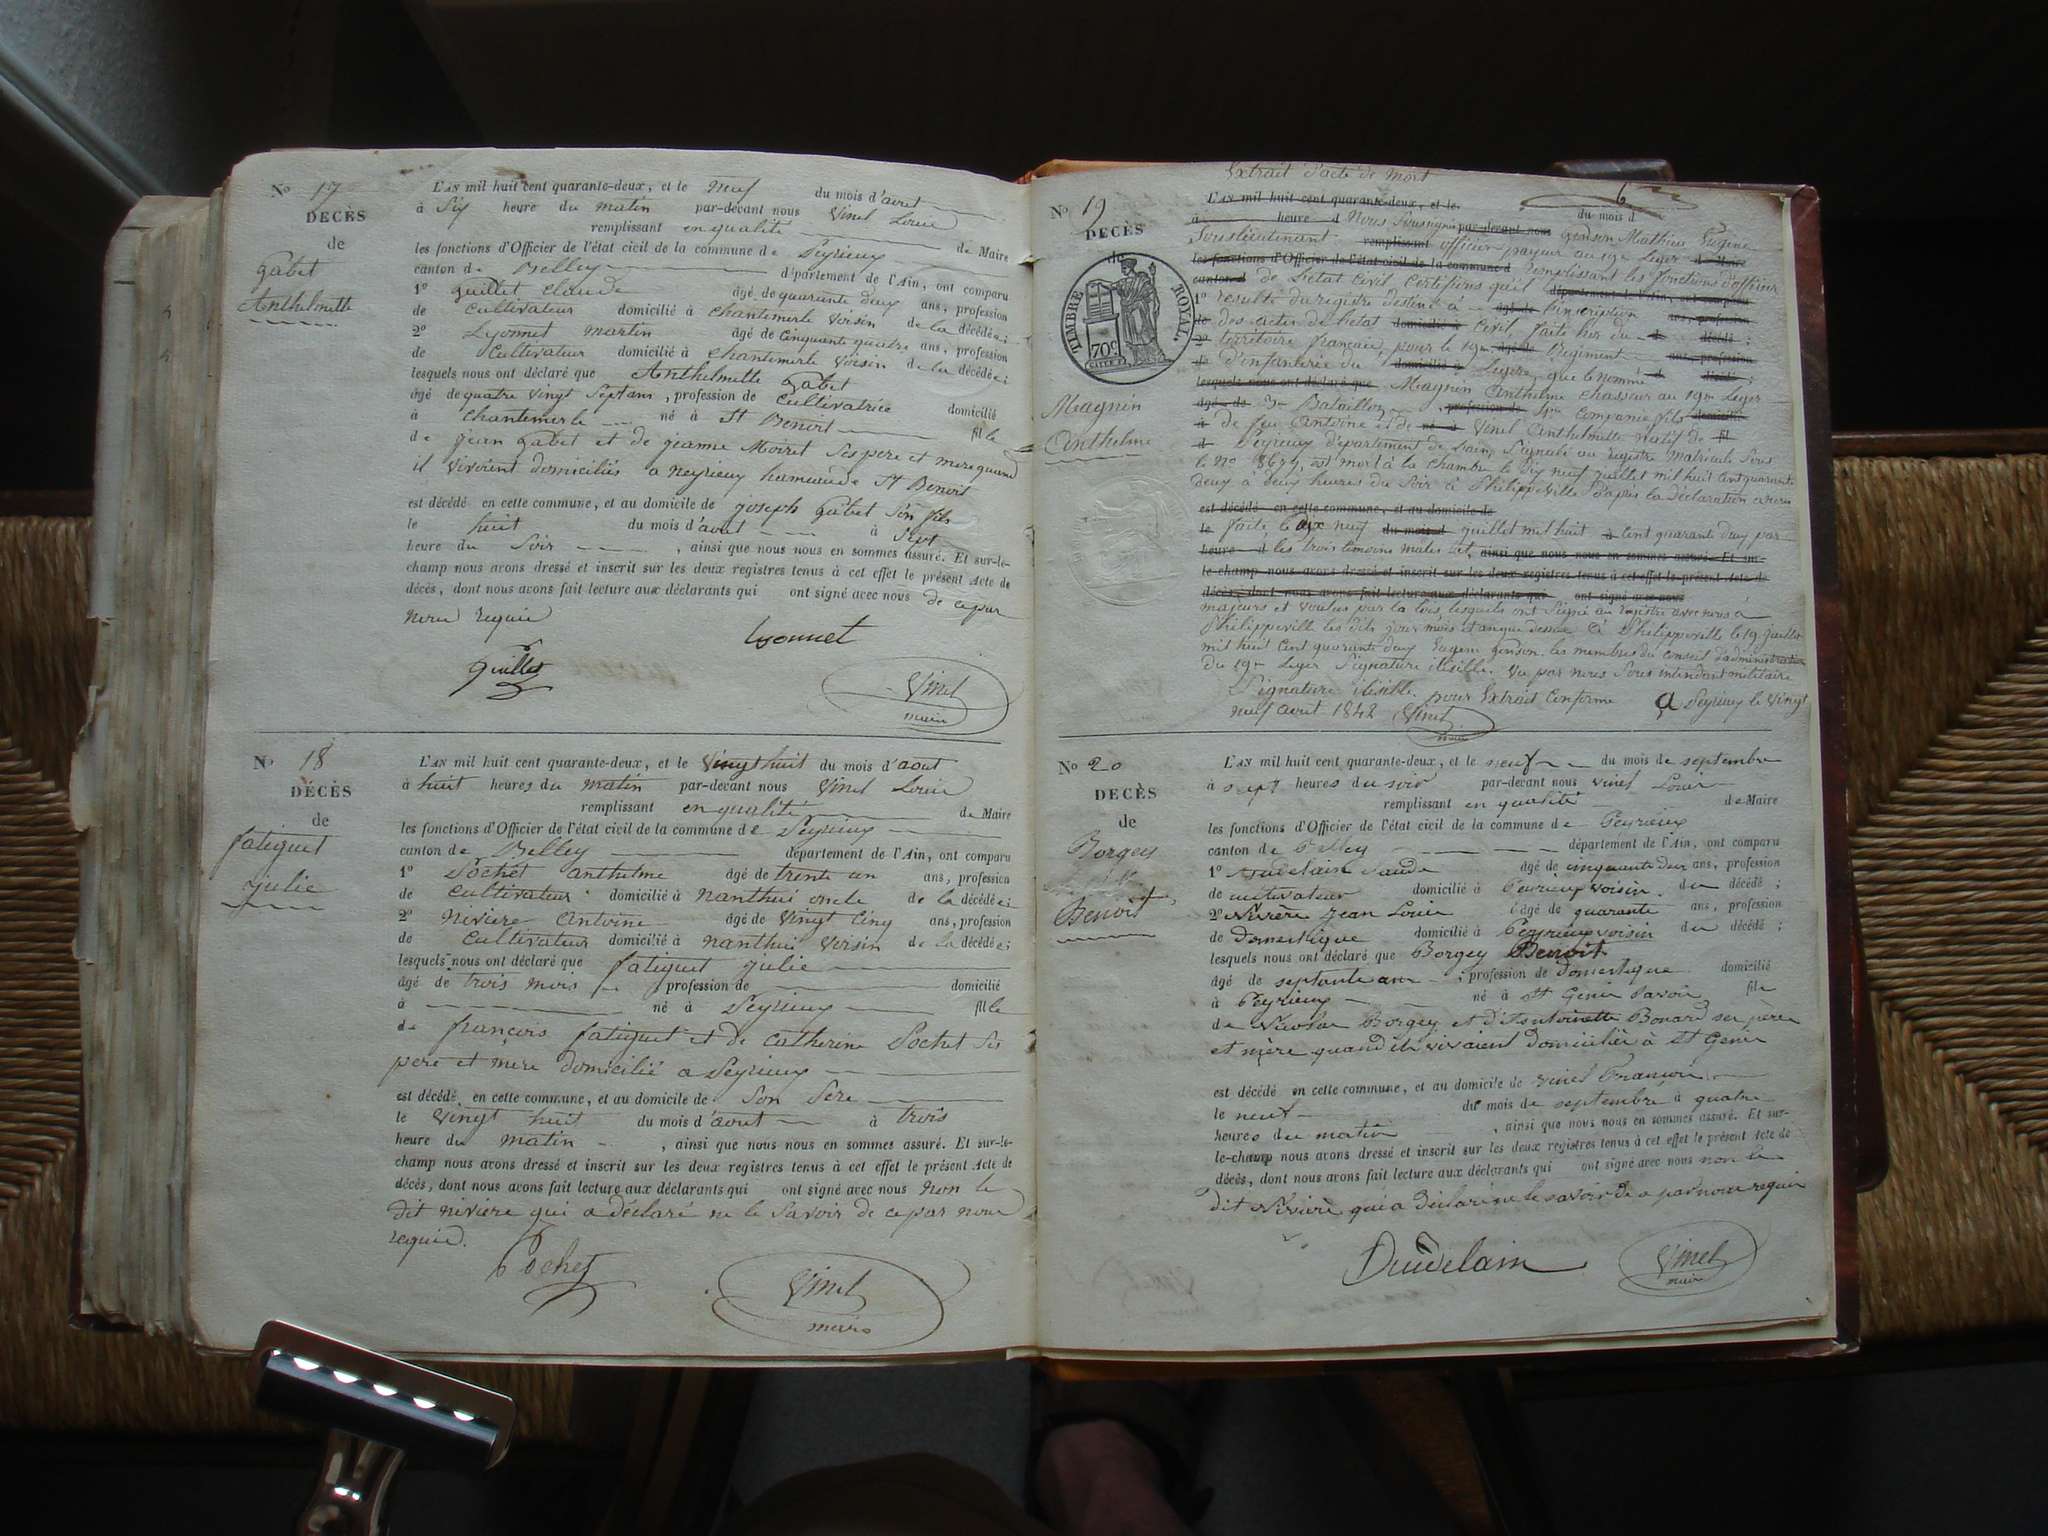 No 17
DECÈS
de
Gabet
Anthelmette
L'AN mil huit cent quarante-deux, et le neuf du mois d'aout
à Six heure du matin par-devant nous Vinel Louis
remplissant en qualité de Maire
les fonctions d'Officier de l'état civil de la commune de Peyrieux
canton de Belley département de l'Ain, ont comparu
1º Guillet Claude âgé de quarante deux ans, profession
de Cultivateur domicilié à Chantemerle Voisin de la décédée;
2º Lyonnet Martin âgé de Cinquante quatre ans, profession
de Cultivateur domicilié à Chantemerle Voisin de la décédée;
lesquels nous ont déclaré que Anthelmette Gabet
âgé de quatre vingt Sept ans, profession de Cultivatrice domicilié
à Chantemerle né à St Benoit fille
de jean Gabet et de jeanne Moiret Ses pere et mere quand
il vivoient domiciliés a neyrieu hameau de St Benoit
est décédé en cette commune, et au domicile de joseph Gabet Son fils
le huit du mois d'aout à Sept
heure du Soir, ainsi que nous nous en sommes assuré. Et sur-le-
champ nous avons dressé et inscrit sur les deux registres tenus à cet effet le présent Acte de
décès, dont nous avons fait lecture aux déclarants qui ont signé avec nous de ce par
nous requis
Lyonnet
Guillet
Vinel
maire
No 18
DÉCÈS
de
fatiguet
julie
L'AN mil huit cent quarante-deux, et le Vingt huit du mois d'aout
à huit heures du matin par-devant nous Vinel Louis
remplissant en qualité de Maire
les fonctions d'Officier de l'état civil de la commune de Peyrieux
canton de Belley département de l'Ain, ont comparu
1º Pochet anthelme âgé de trente un ans, profession
de Cultivateur domicilié à Nanthui oncle de la décédée;
2º Niviere Antoine âgé de Vingt Cinq ans, profession
de Cultivateur domicilié à Nanthui Voisin de la décédée;
lesquels nous ont déclaré que fatiguet julie
âgé de trois mois, profession de domicilié
à né à Peyrieux fille
de françois fatiguet et de Catherine Pochet Ses
pere et mere domicilié a Peyrieux
est décédé en cette commune, et au domicile de Son Pere
le Vingt huit du mois d'aout à trois
heure du matin, ainsi que nous nous en sommes assuré. Et sur-le-
champ nous avons dressé et inscrit sur les deux registres tenus à cet effet le présent Acte de
décès, dont nous avons fait lecture aux déclarants qui ont signé avec nous non le
dit niviere qui a déclaré ne le Savoir de ce par nous
requis.
Pochet
Vinel
maire
Extrait d'acte de mort
6
No 19
DÉCÈS
de
TIMBRE ROYAL
70c
Magnin
Anthelme
L'AN mil huit cent quarante-deux, et le du mois d
à heure d Nous Soussigné par-devant nous Genson Mathieu Eugène
Souslieutenant remplissant officier payeur au 19e Leger de Maire
les fonctions d'Officier de l'état civil de la commune d remplissant les fonctions d'officier
canton d de l'etat Civil Certifions qu'il département de l'Ain, ont comparu
1º resulte du registre destiné à âgé de l'inscription ans, profession
de des actes de l'etat domicilié à Civil faite hors du d décédé;
2º territoire français, pour le 19e âgé de Regiment ans, profession
de d'infanterie du domicilié à Legere que le nommé d décédé;
lesquels nous ont déclaré que Magnin Anthelme Chasseur au 19e Leger
âgé de 3e Bataillon, profession de 4me Compagnie fils domicilié
à de feu Antoine et de né à Vinel Anthelmette natif de fil
d Peyrieux departement de l'ain, Signalé au registre matricule Sous
le No 8677, est mort à la Chambre le Dix neuf juillet mil huit Cent quarante
deux à deux heures du Soir à Philippeville D'apres la déclaration
est décédé en cette commune, et au domicile de
le faite le dix neuf du mois d juillet mil huit à Cent quarante deux par
heure d les trois temoins males et, ainsi que nous nous en sommes assuré. Et sur-
le-champ nous avons dressé et inscrit sur les deux registres tenus à cet effet le présent Acte de
décès, dont nous avons fait lecture aux déclarants qui ont signé avec nous
majeurs et voulus par la loi, lesquels ont Signé au registre avec nous à
Philippeville les dits jour mois et an que dessus à Philippeville le 19 juillet
mil huit Cent quarante deux Eugene Genson. les membres du Conseil d'administration
Du 19e Leger Signature ilisible. Vu par nous Sous intendant militaire
Signature ilisible. pour Extrait Conforme A Peyrieux le Vingt
neuf avril 1842 Vinel
maire
No 20
DECÈS
de
Borgey
Benoit
L'AN mil huit cent quarante-deux, et le neuf du mois de septembre
à sept heures du soir par-devant nous Vinel Louis
remplissant en qualité de Maire
les fonctions d'Officier de l'état civil de la commune de Peyrieux
canton de Belley département de l'Ain, ont comparu
1º Dudelain âgé de cinquante deux ans, profession
de cultivateur domicilié à Peyrieux voisin du décédé;
2º Nivière Jean Louis âgé de quarante ans, profession
de Domestique domicilié à Peyrieux voisin du décédé;
lesquels nous ont déclaré que Borgey Benoit
âgé de septante ans, profession de Domestique domicilié
à Peyrieux né à St Genix Savoie fils
de Nicolas Borgey et d'Antoinette Bonard ses père
et mère quand ils vivaient domiciliés à St Genix
est décédé en cette commune, et au domicile de Vinel François
le neuf du mois de septembre à quatre
heures du matin, ainsi que nous nous en sommes assuré. Et sur-
le-champ nous avons dressé et inscrit sur les deux registres tenus à cet effet le présent Acte de
décès, dont nous avons fait lecture aux déclarants qui ont signé avec nous non le
dit Nivière qui a déclaré ne le savoir de ce par nous requis
Dudelain
Vinel
maire